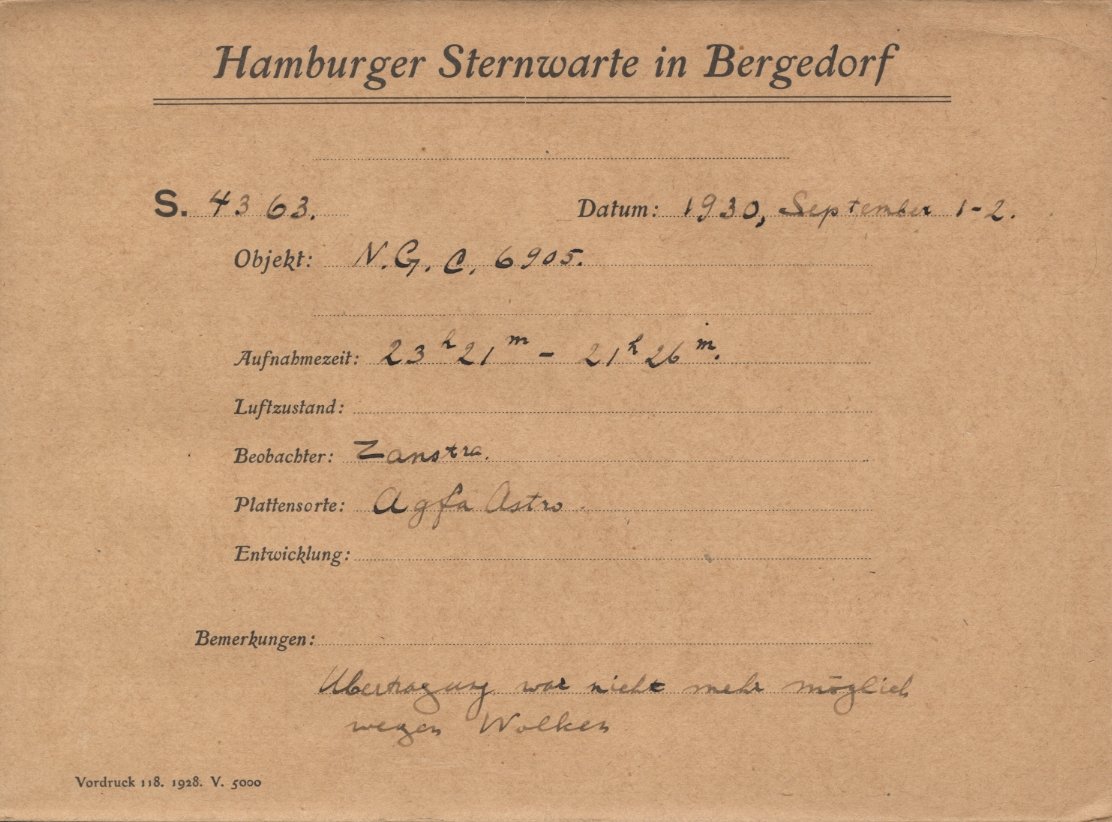 Hamburger Sternwarte in Bergedorf
S. 4363. Datum: 1930, September 1-2.
Objekt: N.G.C. 6905.
Aufnahmezeit: 23h21m - 21h26m.
Luftzustand:
Beobachter: Zanstra.
Plattensorte: Agfa Astro
Entwicklung:
Bemerkungen:
Ubertragung war nicht mehr möglich
wegen Wolken
Vordruck 118. 1928. V. 5000